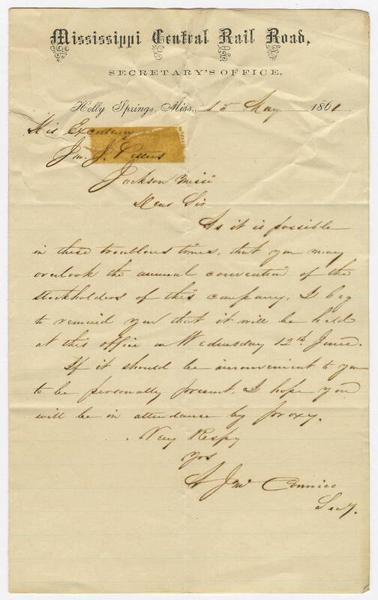 Mississippi Central Rail Road,
SECRETARY'S OFFICE,
Holly Springs, Miss., 15 May 1861
His Excellency
Jno. J. Pettus
Jackson Missi
Dear Sir
As it is possible
in these troublous times, that you may
overlook the annual convention of the
stockholders of this company, I beg
to remind you that it will be held
at this office on Wednesday 12th June.
If it should be inconvenient to you
to be personally present, I hope you
will be in attendance by proxy.
Very Respy
Yrs
A J Mc Connico
Secy.